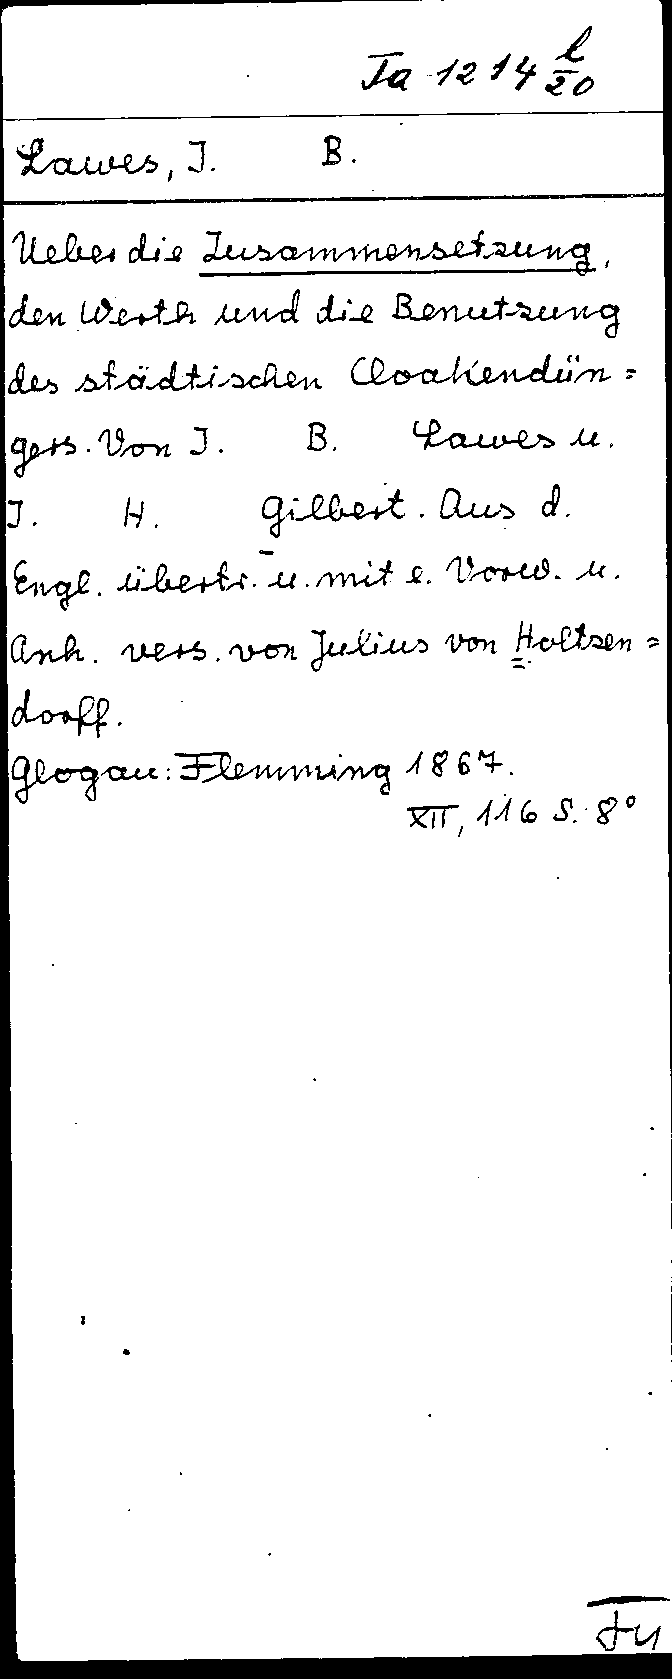 Ta 1214 l/20
Lawes, J. B.
Ueber die Zusammensetzung,
den Werth und die Benutzung
des städtischen Cloakendün=
gers. Von J. B. Lawes u.
J. H. Gilbert. Aus d.
Engl. übertr. u. mit e. Vorw. u.
Anh. vers. von Julius von Holtzen=
dorff.
Glogau: Flemming 1867.
XII, 116 S. 8°